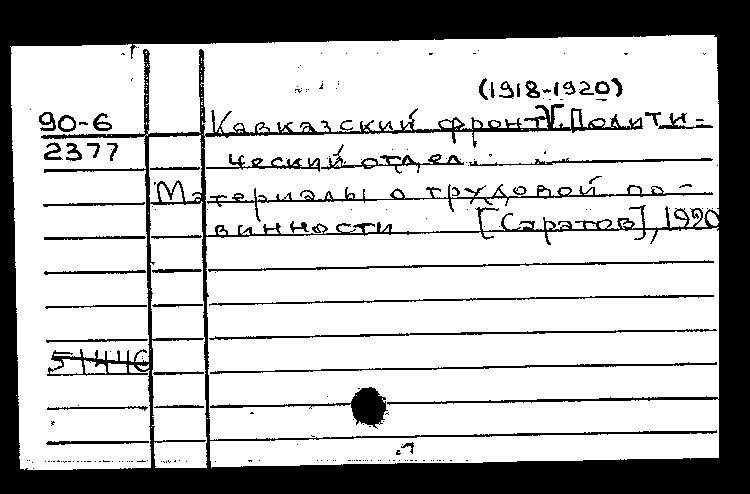 (1918-1920)
90-6 Кавказский фронт. Полити-
2377 ческий отдел.
Материалы о трудовой по-
винности. [Саратов], 1920
51446